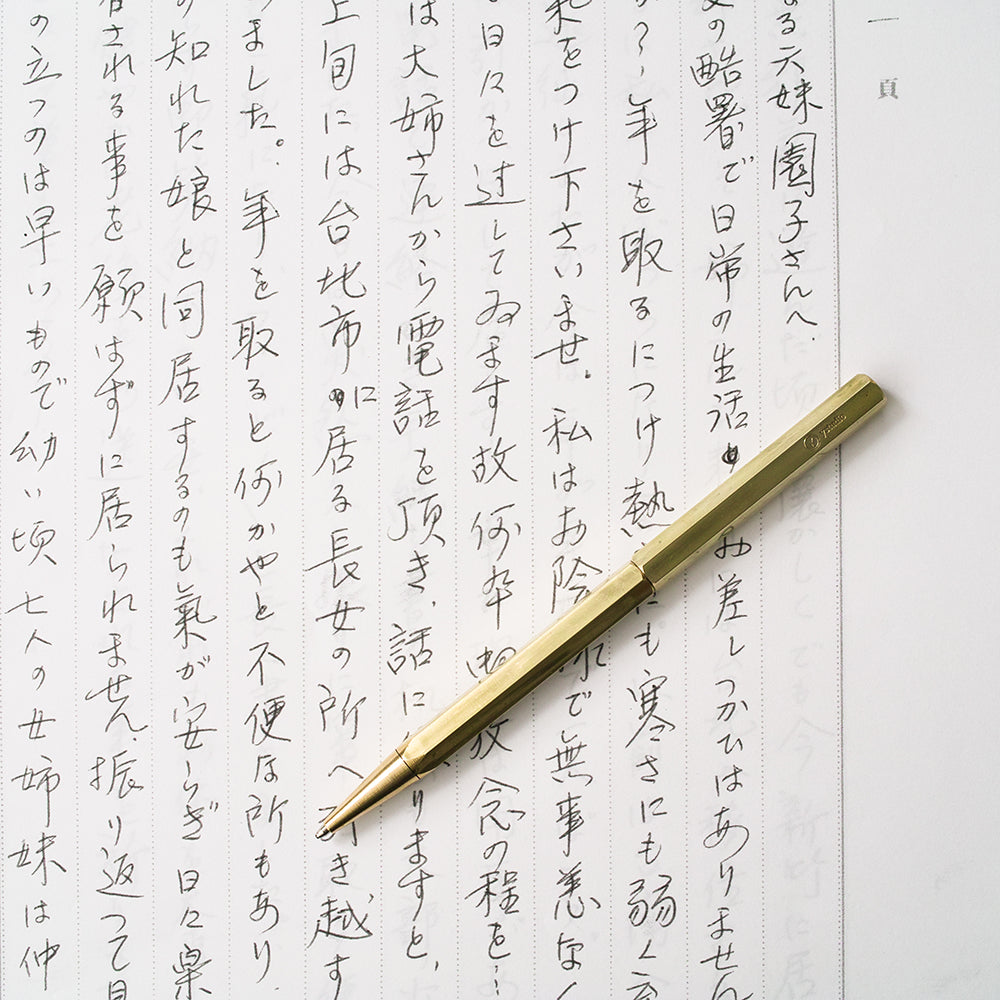 一頁
る六妹園子さんへ.
の酷署で日常の生活 お差しつかひはありません
年を取るにつけ熱 にも寒さにも弱く
をつけ下さいませ。私はお陰 で無事恙な
日々を过してゐます故何卒 放念の程を
は大姉さんから電話を頂き、話に りますと、
上旬には台北市に居る長女の所へ き越す
ました。年を取ると何かやと不便な所もあり
知れた娘と同居するのも氣が安らぎ日々
される事を願はずに居られません。振り返つて
の立つのは早いもので幼い頃七人の女姉妹は仲